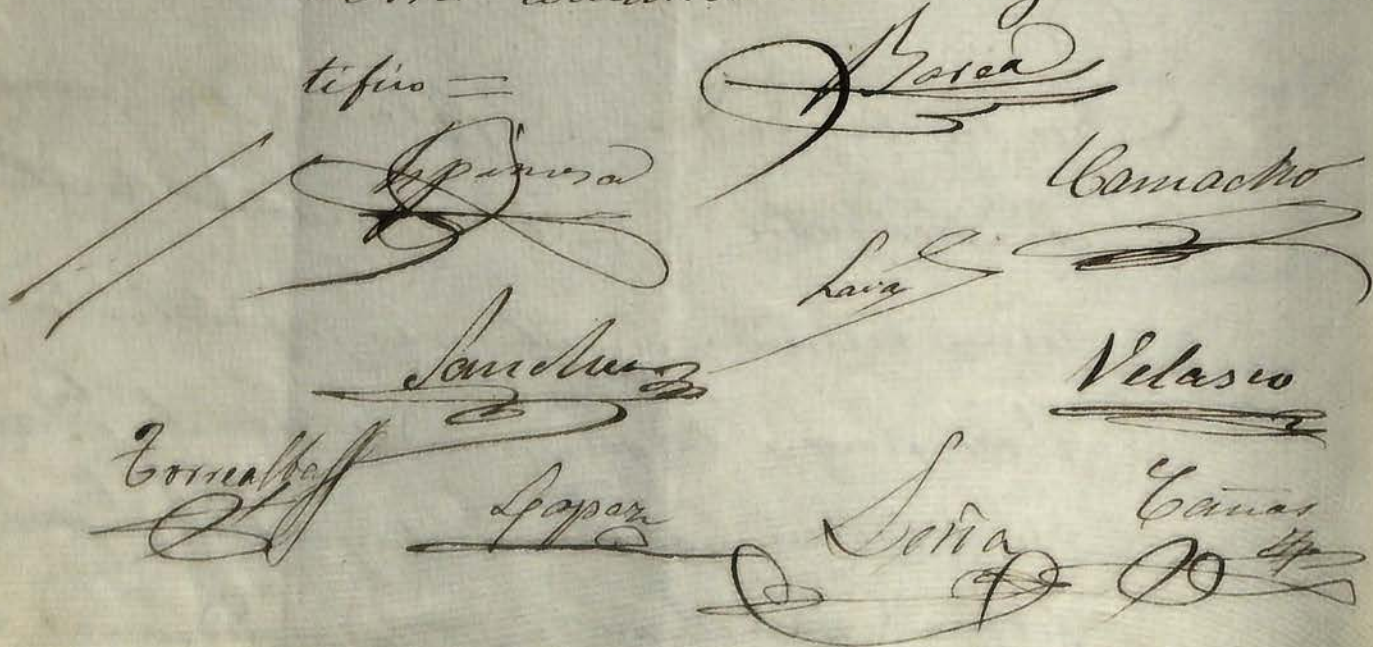 tifico =
Borea
Espinosa
Camacho
Lara
Sanchez
Velasco
Torrealba
Lopez
Soria
Cañas